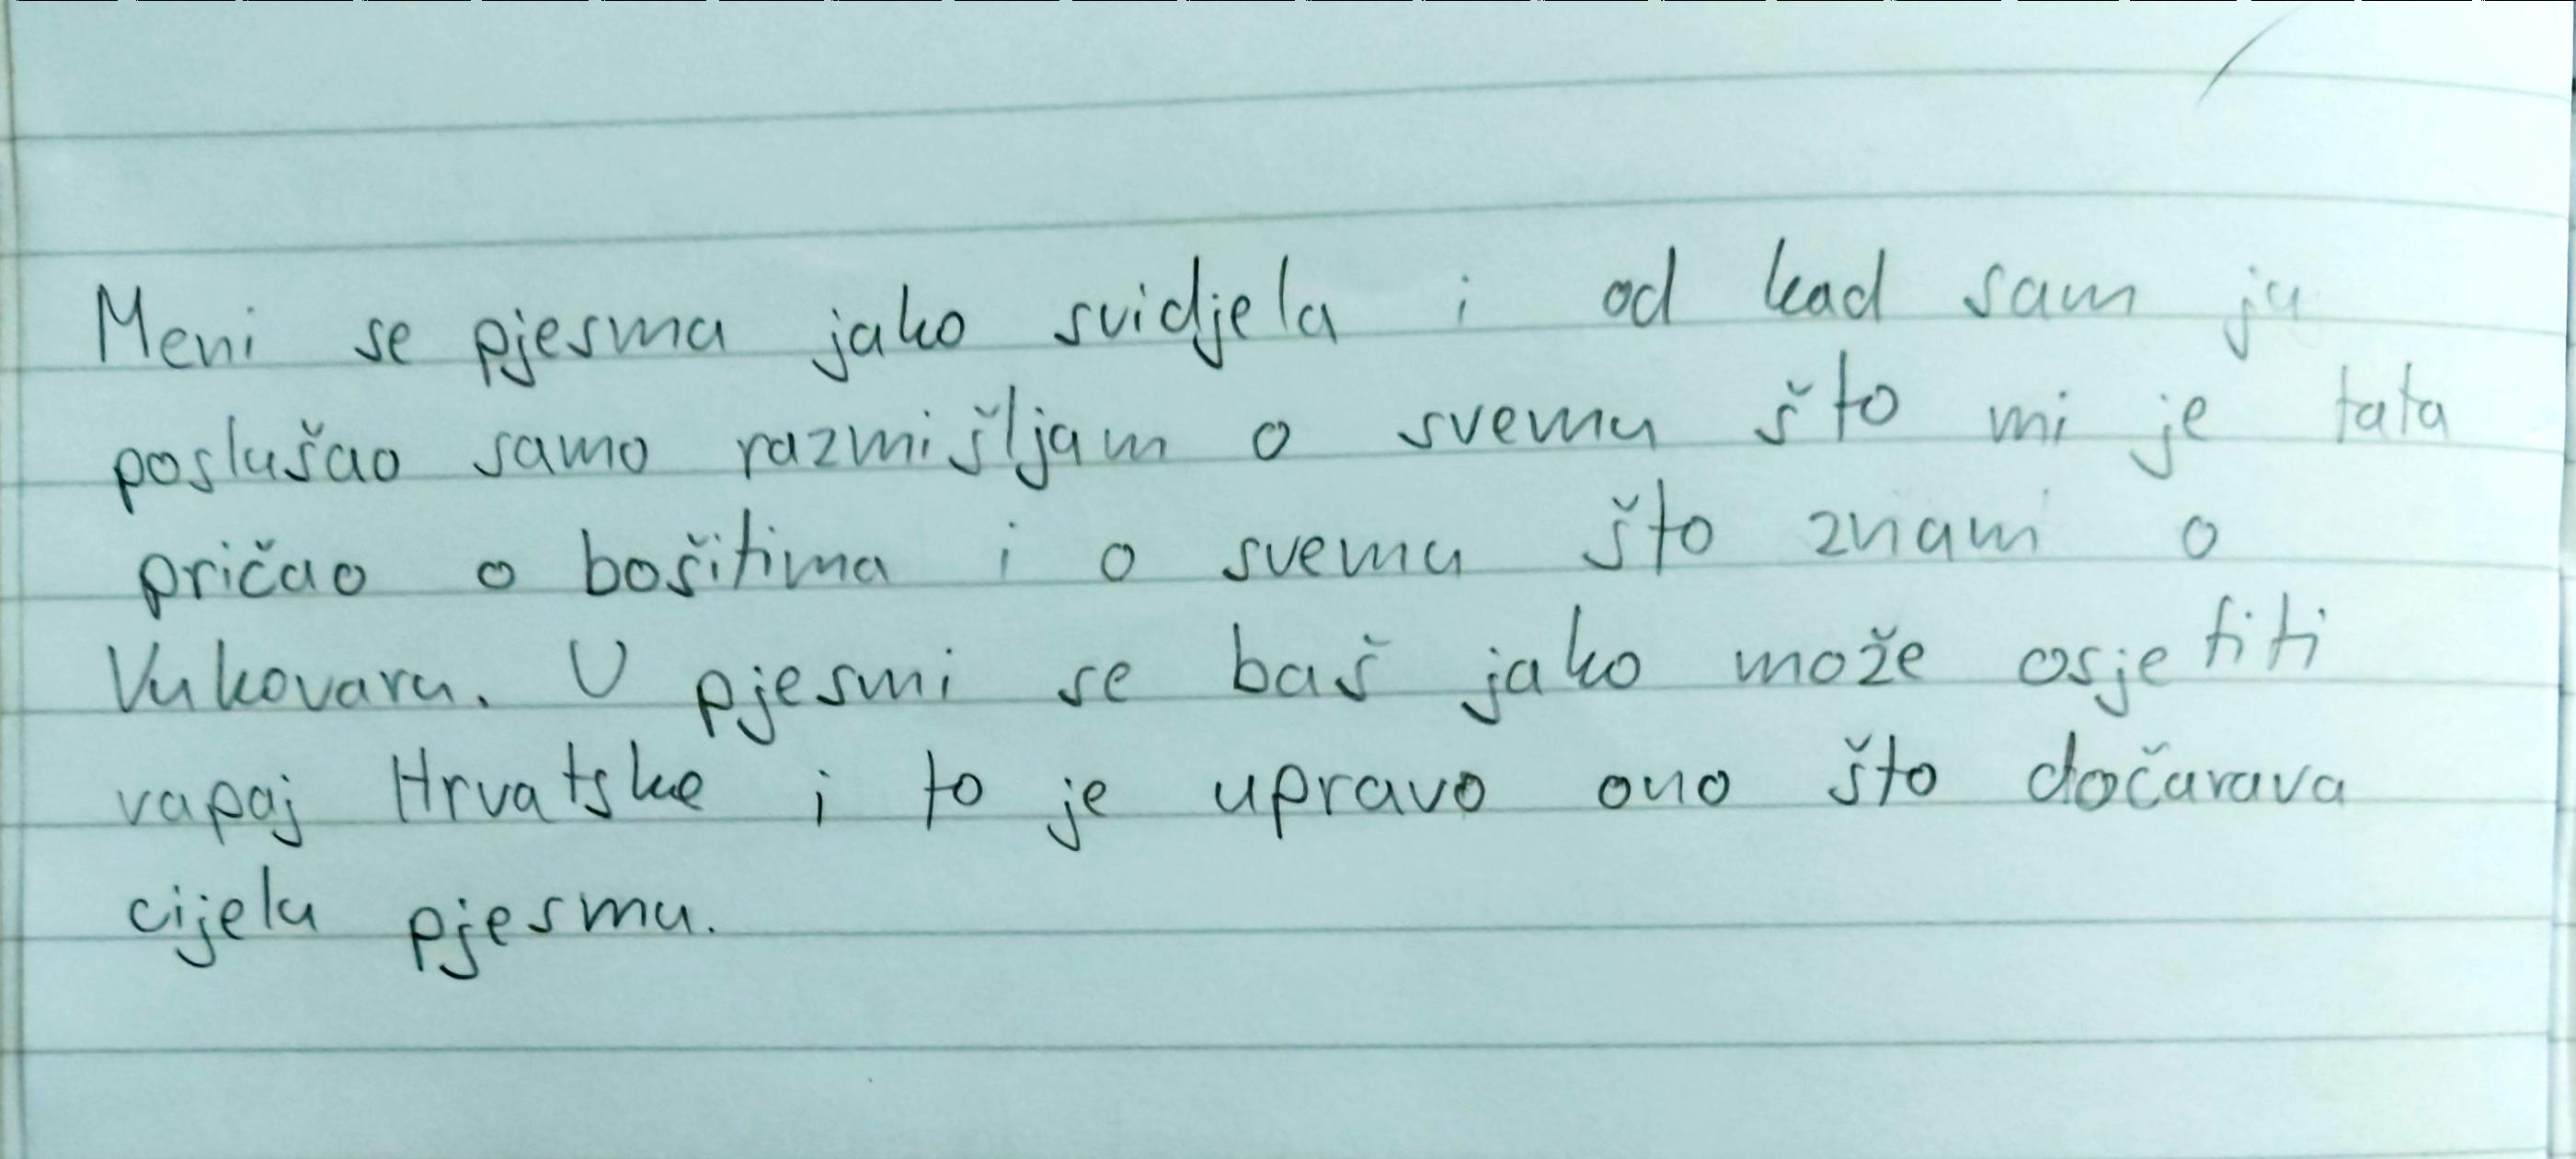 Meni se pjesma jako svidjela i od kad sam ju
poslušao samo razmišljam o svemu što mi je tata
pričao o i o svemu što znam o
Vukovaru. U pjesmi se baš jako može osjetiti
vapaj Hrvatske i to je upravo ono što dočarava
cijelu pjesmu.